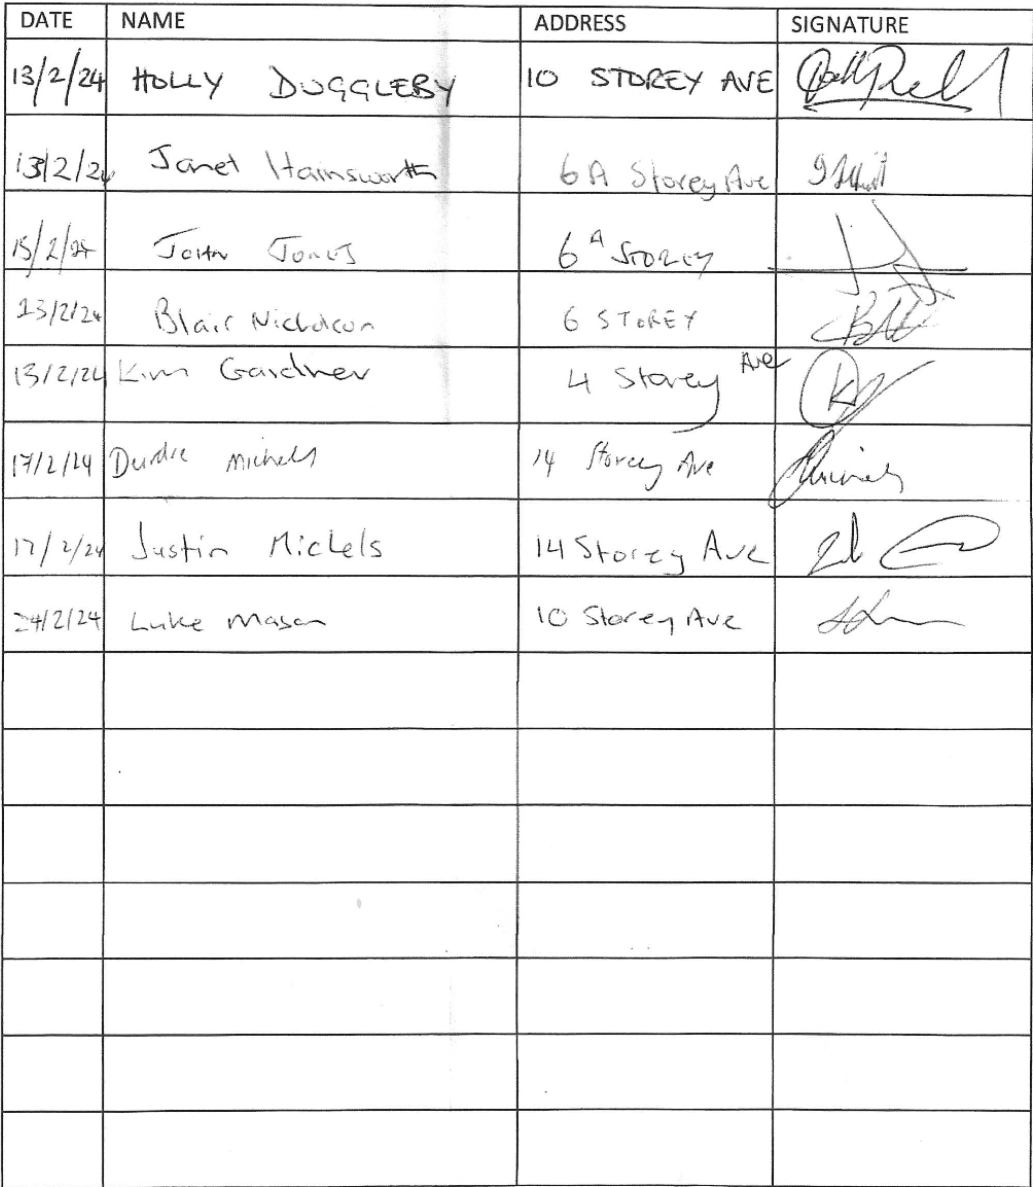 DATE NAME ADDRESS SIGNATURE
13/2/24 HOLLY DUGGLEBY 10 STOREY AVE
13/2/24 Janet Hainsworth 6A Storey Ave
15/2/24 John Jones 6A STOREY
13/2/24 Blair Nicholson 6 STOREY
13/2/24 Kim Gardner 4 Storey Ave
17/2/24 Deirdre Michels 14 Storey Ave
17/2/24 Justin Michels 14 Storey Ave
24/2/24 Luke Mason 10 Storey Ave